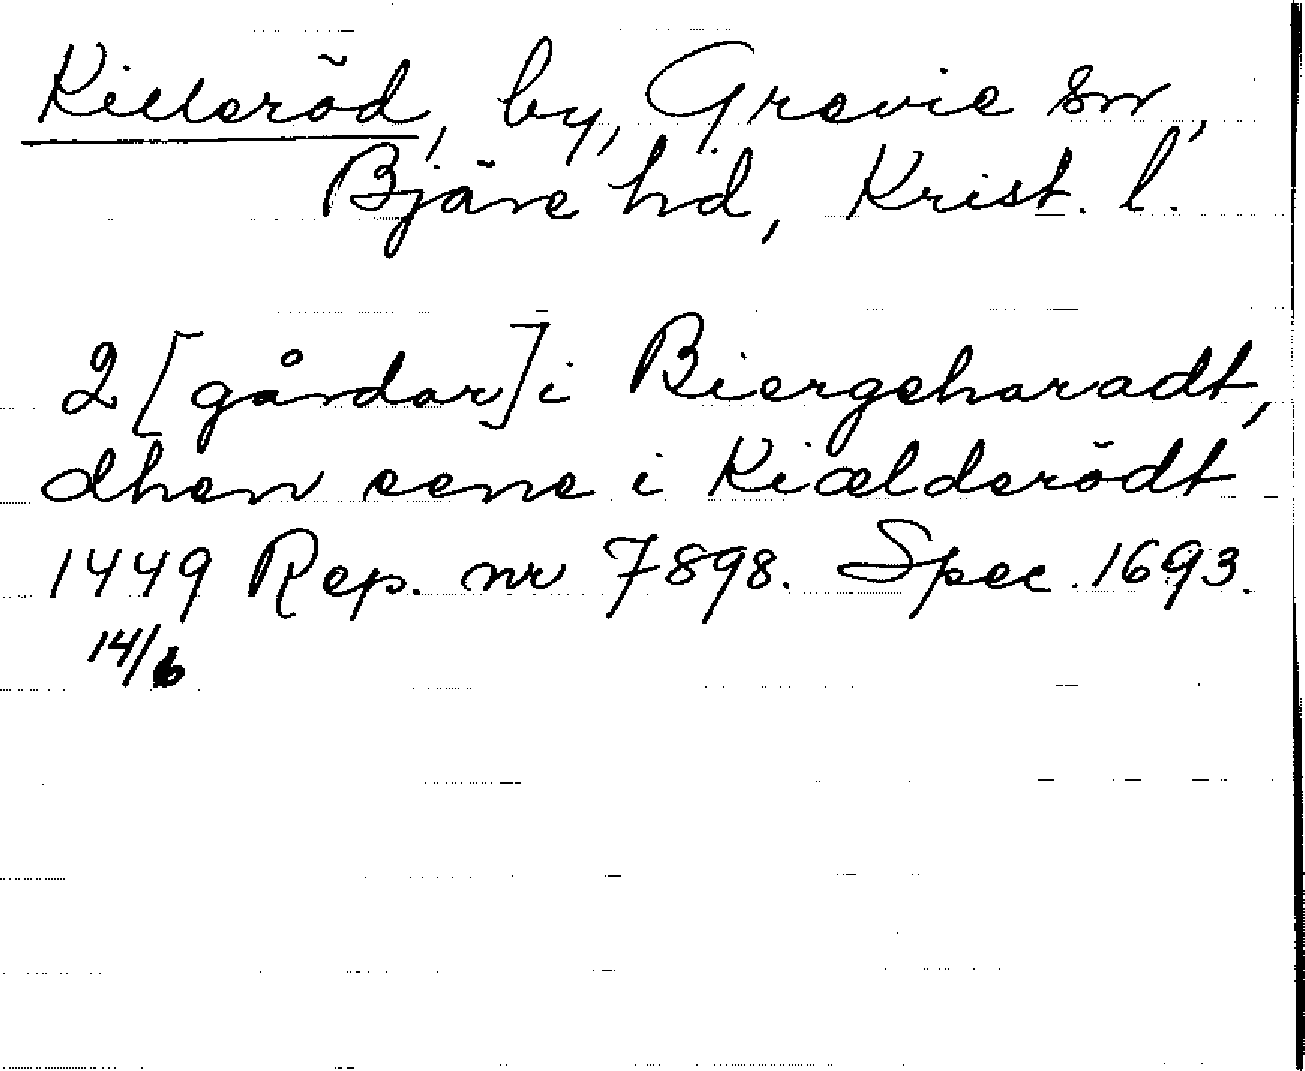 Killeröd, by, Grevie sn,
Bjäre hd, Krist. l.
2 [gårdar] i Biergeharadt,
dhen eene i Kiælderödt
1449 Rep. nr 7898. Spec. 1693.
14/6